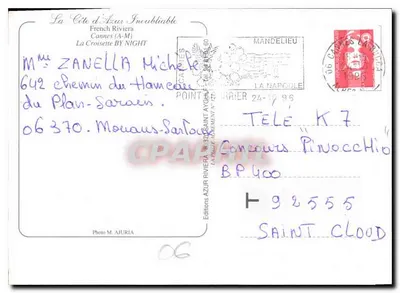 La Côte d'Azur Inoubliable
French Riviera
Cannes (A-M)
La Croisette BY NIGHT
Mme ZANELLA Michèle
642 chemin du Hameau
du Plan Sarain
06370. Mouans-Sartoux
MANDELIEU
LA NAPOULE
POINT
24-
TELE K7
Concours PINOCCHIO
BP400
92555
SAINT CLOUD
Photo M. AJURIA
Editions AZUR RIVIERA
06